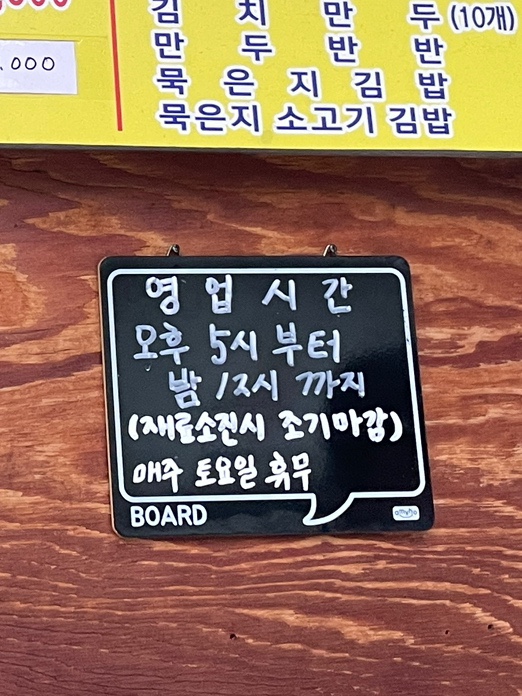 김 치 만 두 (10개)
만 두 반 반
묵 은 지 김 밥
묵은지 소고기 김밥
,000
영업시간
오후 5시 부터
밤 12시 까지
(재료소진시 조기마감)
매주 토요일 휴무
BOARD